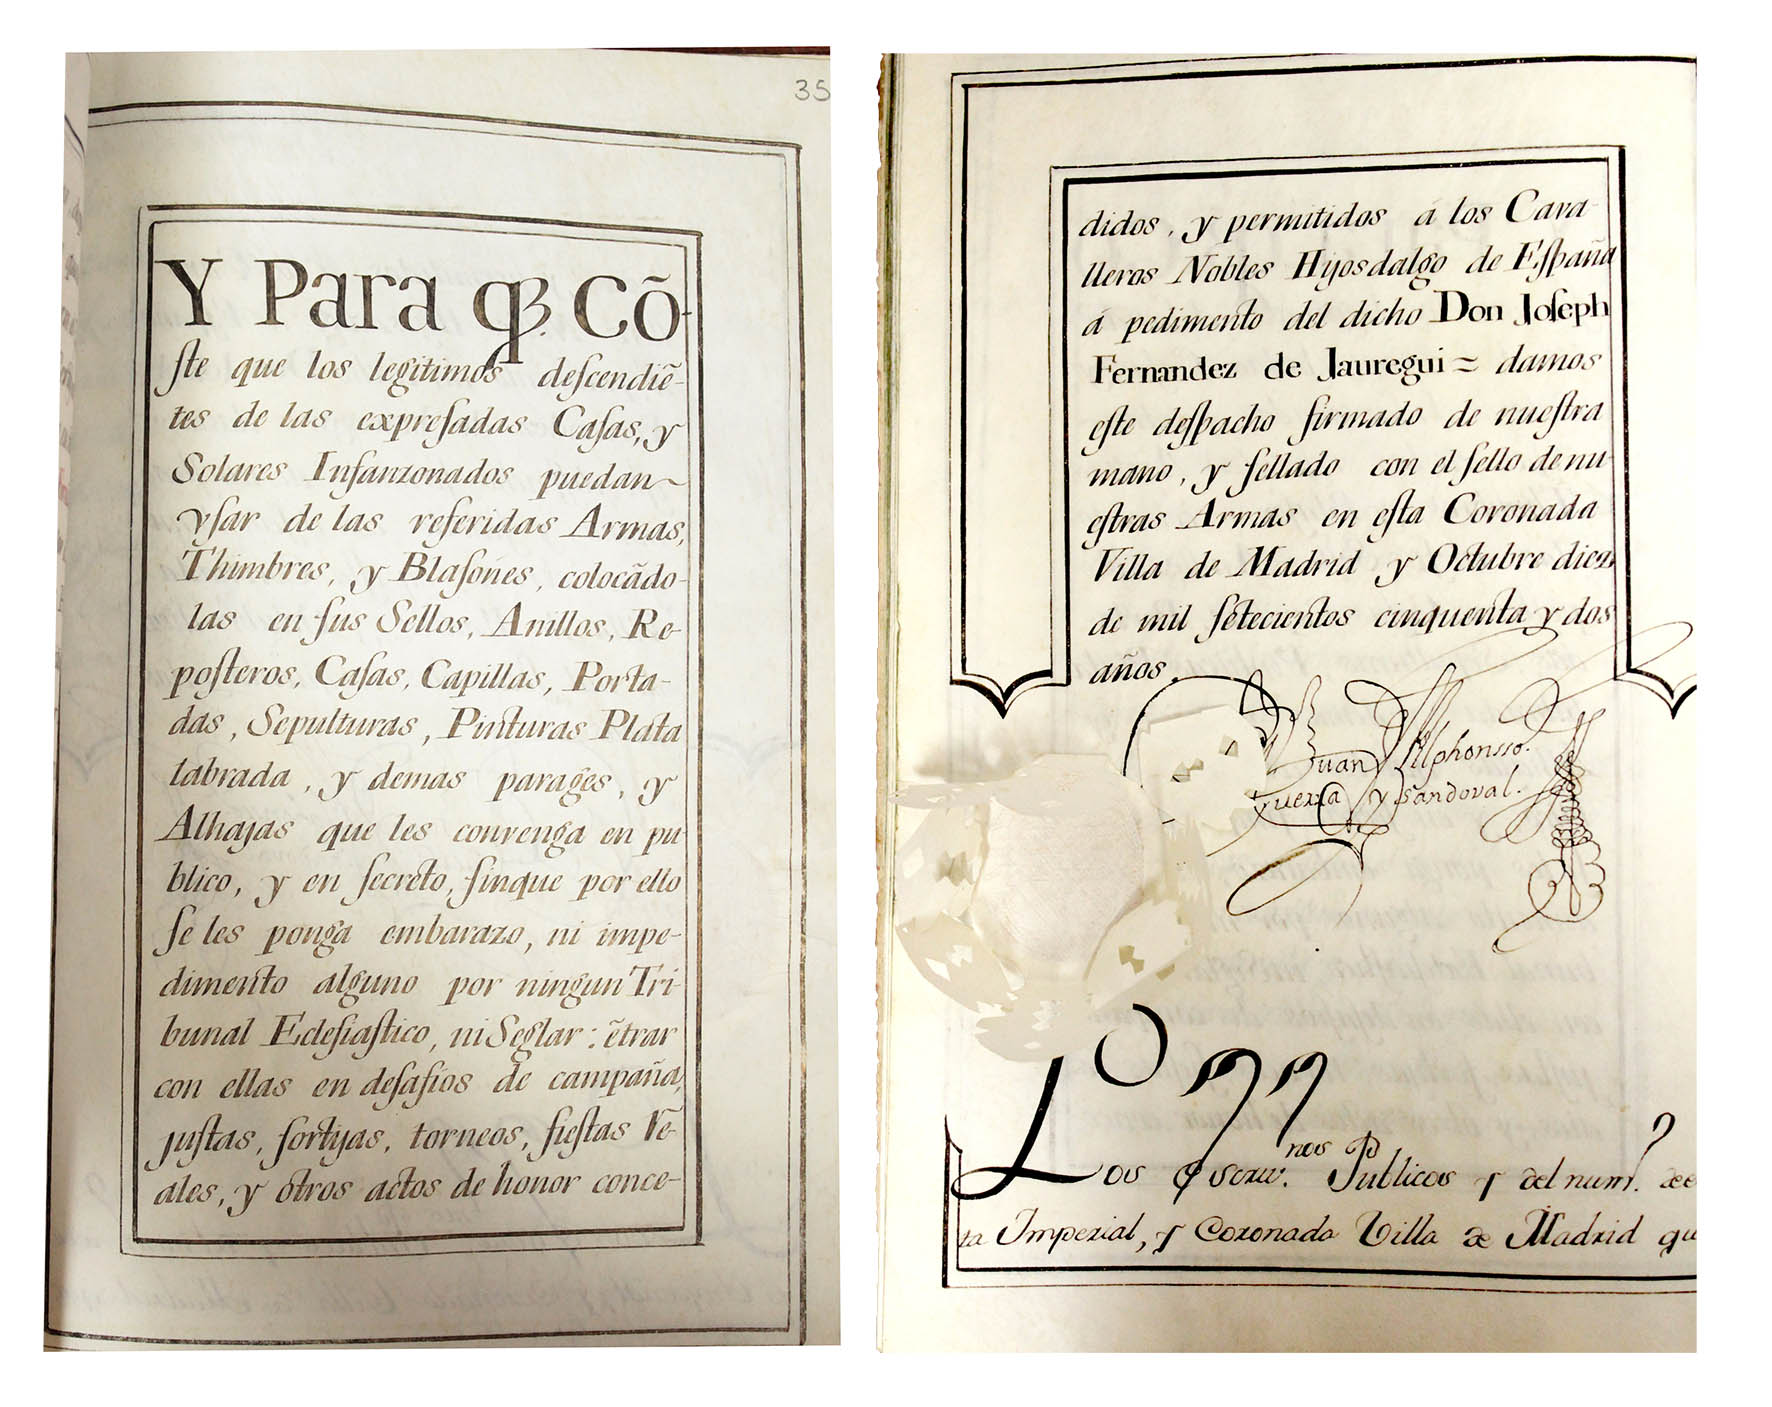 35
Y Para qȝ. Cõ-
ſte que los legitimos deſcendiẽ-
tes de las expreſadas Caſas, y
Solares Infanzonados puedan
vſar de las referidas Armas,
Thimbres, y Blaſones, colocãdo-
las en ſus Sellos, Anillos, Re-
poſteros, Caſas, Capillas, Porta-
das, Sepulturas, Pinturas Plata
labrada, y demas parages, y
Alhajas que les convenga en pu
blico, y en ſecreto, ſinque por ello
ſe les ponga embarazo, ni impe-
dimento alguno por ningun Tri-
bunal Ecleſiaſtico, ni Seglar: ẽtrar
con ellas en deſafios de campaña,
juſtas, ſortijas, torneos, fieſtas Rẽ-
ales, y otros actos de honor conce-
didos, y permitidos á los Cava-
lleros Nobles Hijosdalgo de Eſpaña
á pedimento del dicho Don Joſeph
Fernandez de Jauregui = damos
eſte deſpacho firmado de nueſtra
mano, y ſellado con el ſello de nu-
eſtras Armas en eſta Coronada
Villa de Madrid y Octubre diez
de mil ſetecientos cinquenta y dos
años.
Juan Alphonsso.
Guerra y Sandoval.
Los Escriv.nos Publicos y del num.º de e
ta Imperial, y Coronada Villa de Madrid qu